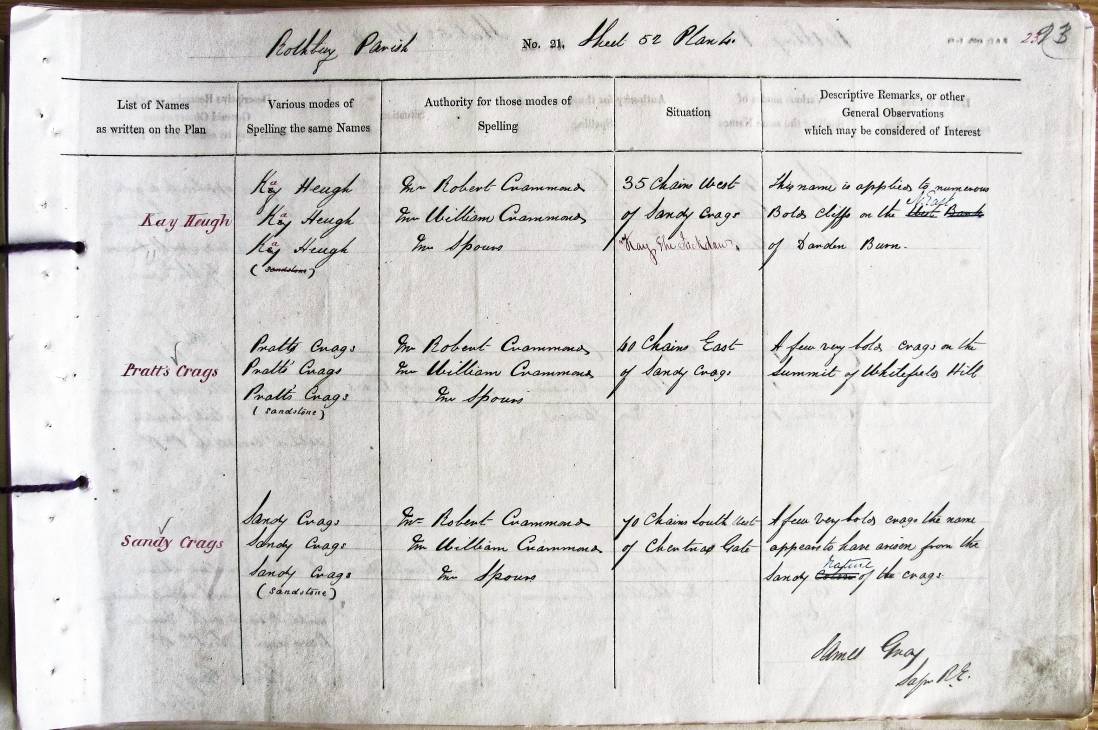 Rothbury Parish No. 21. Sheet 52 Plan 4. 23 93
List of Names
as written on the Plan
Various modes of
Spelling the same Names
Authority for those modes of
Spelling
Situation
Descriptive Remarks, or other
General Observations
which may be considered of Interest
Kay Heugh
Kay Heugh
Kay Heugh
Kay Heugh
(Sandstone)
Mr Robert Crammond
Mr William Crammond
Mr Spours
35 Chains West
of Sandy Crags
"Kay, the Jackdaw".
This name is applied to numerous
Bold cliffs on the West Bank N. East
of Darden Burn.
Pratt's Crags
Pratts Crags
Pratt's Crags
Pratt's Crags
(Sandstone)
Mr Robert Crammond
Mr William Crammond
Mr Spours
40 Chains East
of Sandy Crags
A few very bold crags on the
Summit of Whitefield Hill
Sandy Crags
Sandy Crags
Sandy Crags
Sandy Crags
(Sandstone)
Mr Robert Crammond
Mr William Crammond
Mr Spours
70 Chains South West
of Chartnas Gate
A few very bold crags the name
appears to have arisen from the
Sandy nature of the crags.
James Gray
Sapr R.E.